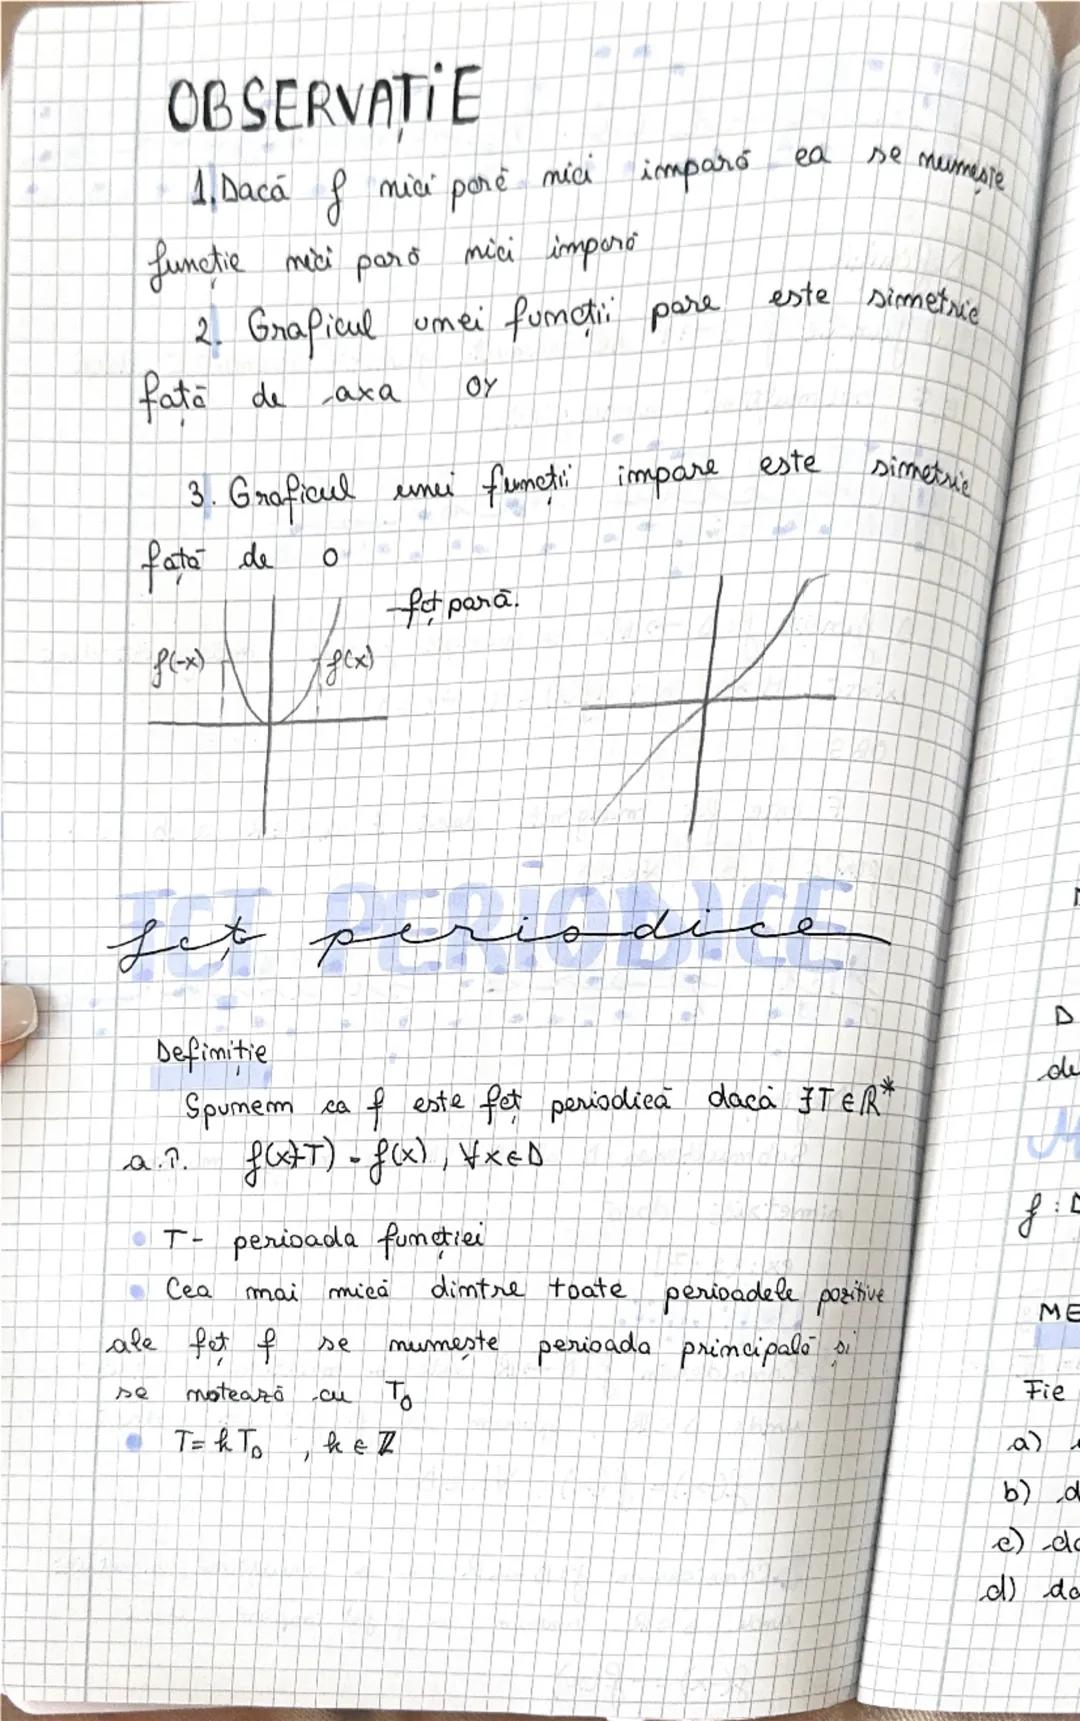 OBSERVAȚIE
1. Dacă f nici pară nici impară ea se numește
funcție nici pară nici impară
2. Graficul unei funcții pare este simetric
față de axa OY
3. Graficul unei funcții impare este simetric
față de O
fcț pară.
f(-x) f(x)
FCT PERIODICE
fcț periodice
Definiție
Spunem ca f este fcț periodică dacă ∃T∈ℝ*
a.î. f(x+T) = f(x), ∀x∈D
• T - perioada funcției
• Cea mai mică dintre toate perioadele pozitive
ale fcț f se numește perioada principală și
se notează cu T₀
• T = kT₀, k∈ℤ
D
de
f : D
ME
Fie
a)
b) d
c) da
d) da